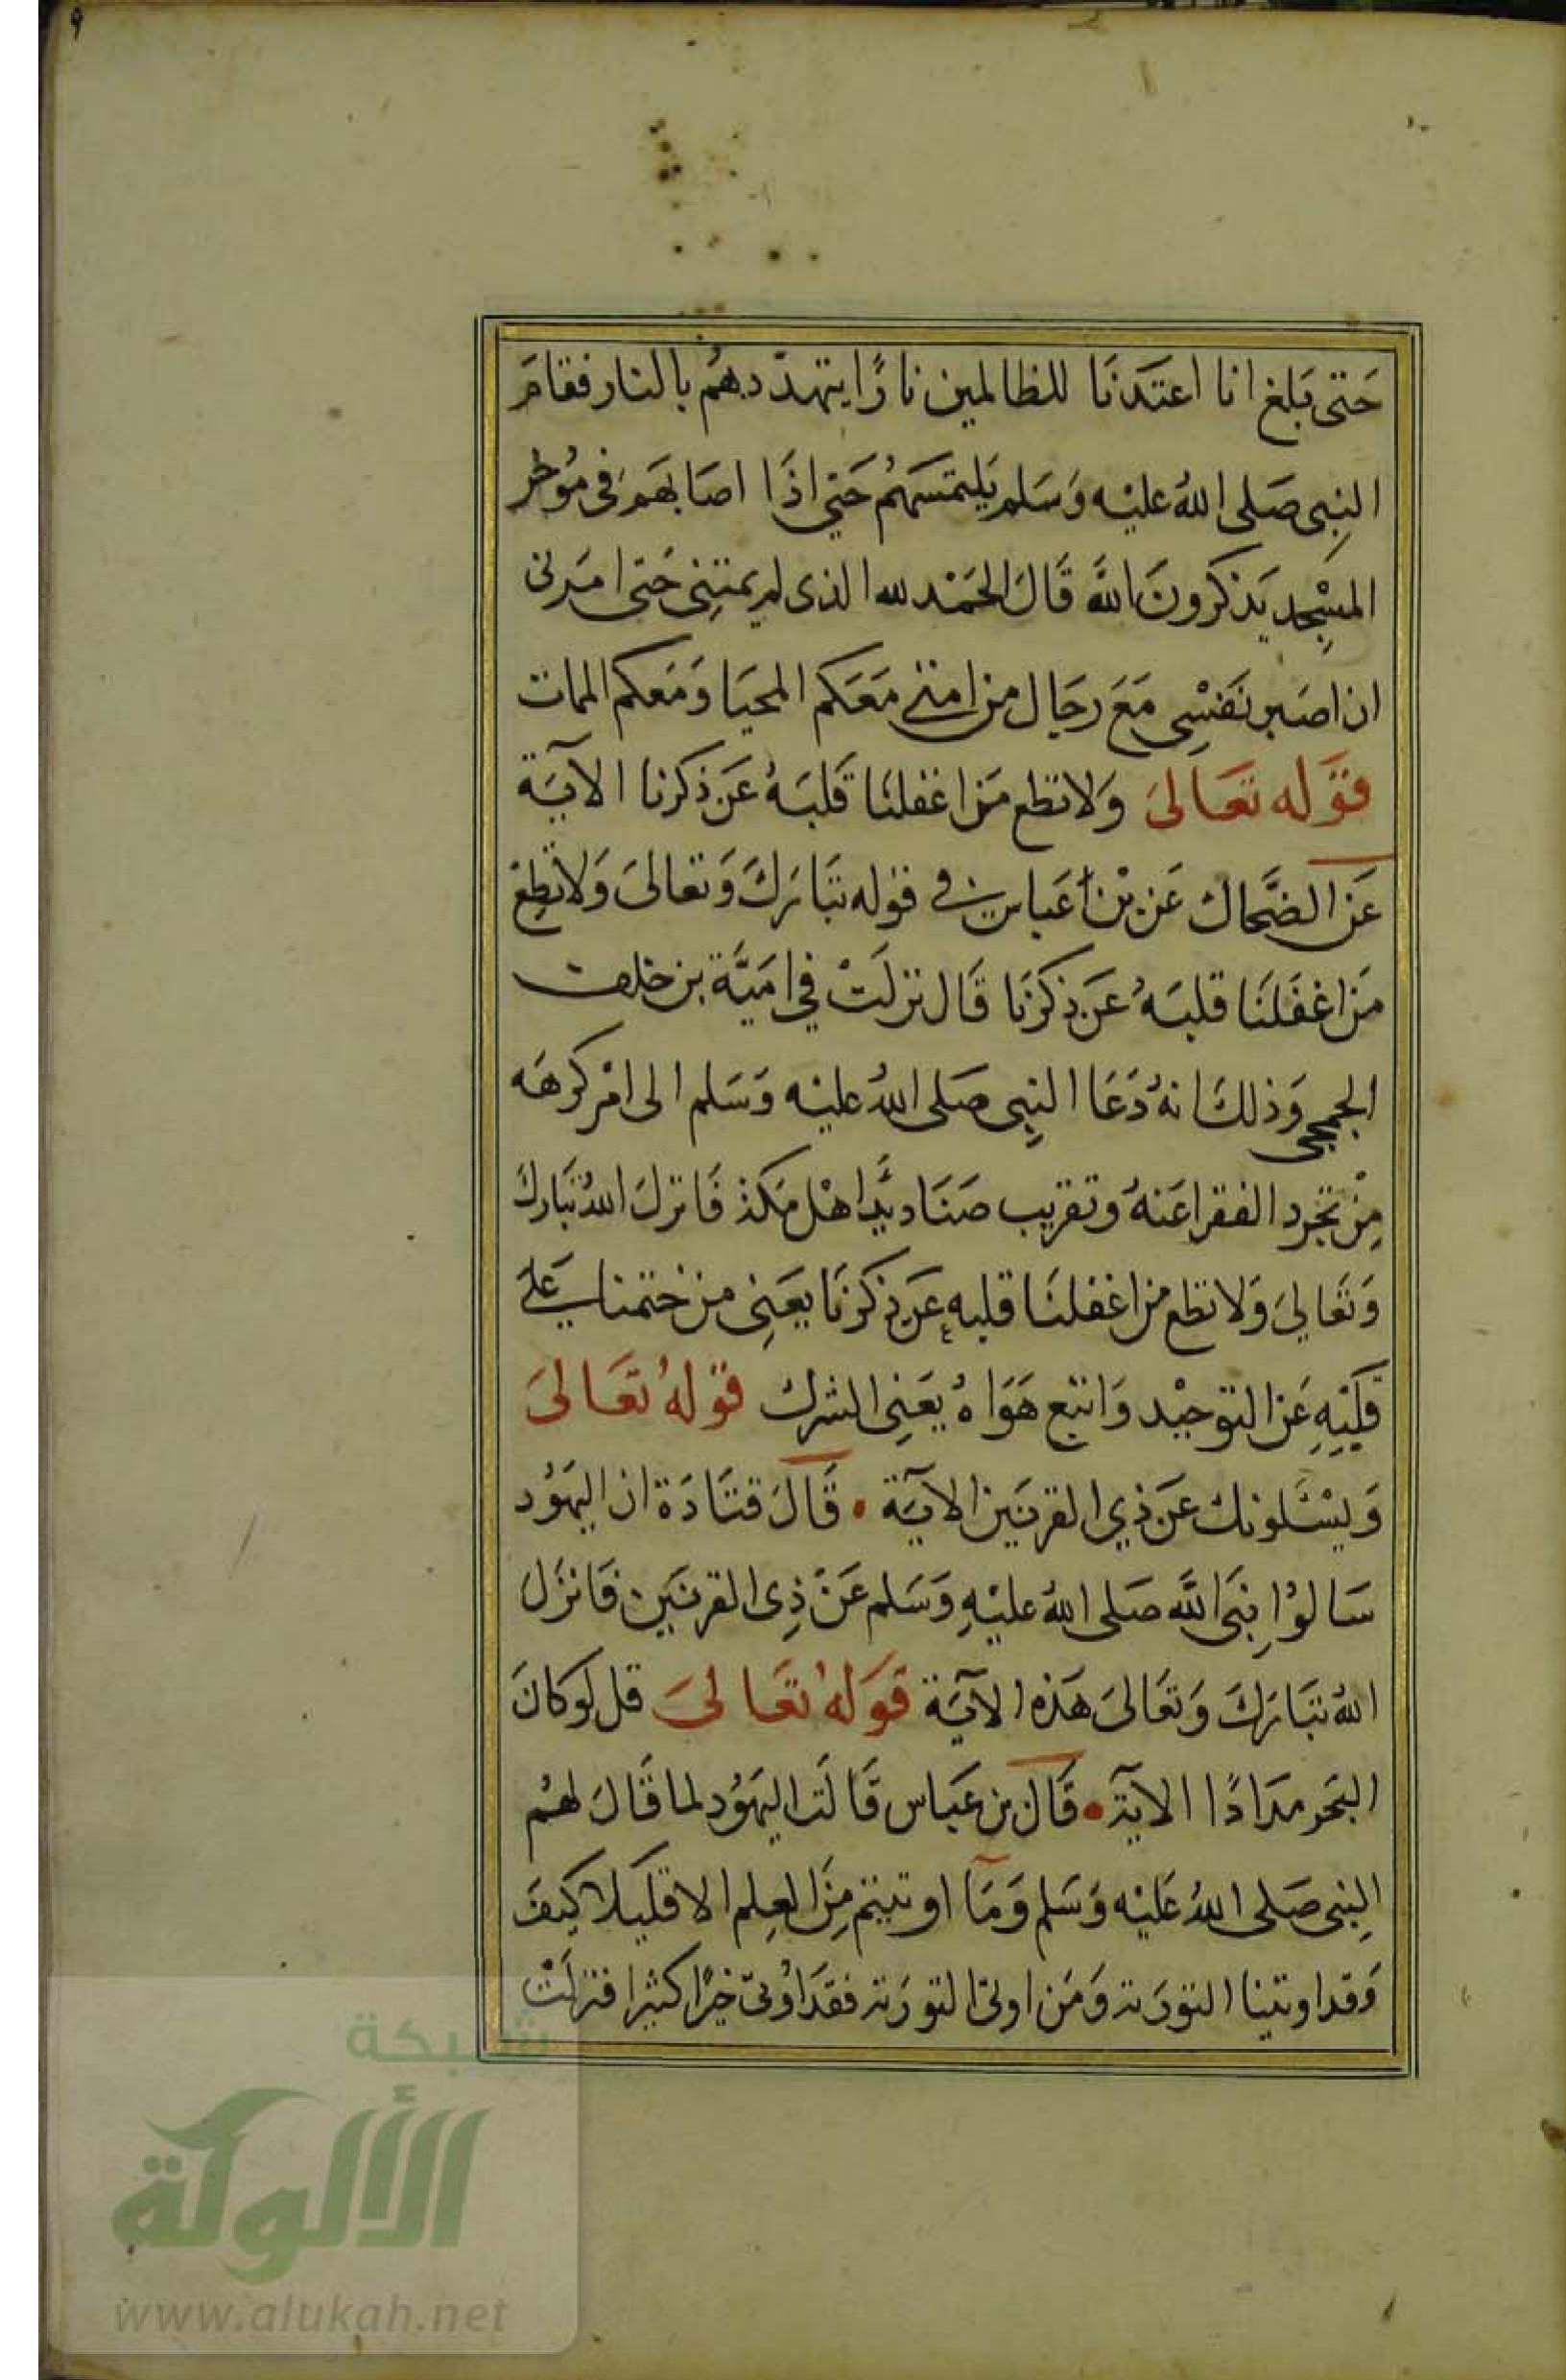 ٩
حَتى بَلغ انا اعتَدنَا للظالمين نارًا يتهدّدهُم بالنار فقامَ
النبِى صَلى اللهُ عليْه وَسَلم يَلتمسَهُم حَتي اذَا اصَابَهَم فى مُوخر
المسِْجد يَذكرونَ اللهَ قَالَ الحَمْد لله الذى لم يمتنِى حَتى امَرنى
ان اصَبر نَفسِْى مَعَ رجَال من امتى مَعَكم المحيَا وَمَعكم الممات
قوَله تعَالىَ وَلا تطع مَن اغفلنَا قَلبَهُ عَن ذكرنا الآيَة
عَن الضَّحاك عَن بْن عَباس فى قوْله تبَارَكَ وَتعَالىَ وَلا تطِعْ
مَن اغفَلنَا قلبَهُ عَن ذكرنَا قَال نزلَتْ في اميَّة بن خلف
الجمحى وَذلكَ انهُ دَعَا النبِى صَلى اللهُ عليْه وَسَلم الى امْر كرهَه
مِنْ تجرد الفقرا عَنهُ وتقريب صَنَاديَّد اهْل مَكة فَانزلَ اللهُ تبَاركَ
وَتعَاليَ وَلا تطع من اغفلنَا قلبهِ عَن ذكرنَا يعَنِى من ختمنا عَلىَ
قلبِهِ عَن التوحيْد وَاتبع هَوَاهُ يعَنِى الشرك قوْلهُ تعَالىَ
وَيسْئَلونك عَن ذي القرنَين الآيَة • قَالَ قتَادَة ان اليَهوُد
سَالوُا نبِىَ اللهَ صَلى اللهُ عليْهِ وَسَلم عَنْ ذِى القرنَين فَانزَلَ
اللهُ تبَارَكَ وَتعَالىَ هَذه الآيَة قوَلهُ تعَالىَ قل لوَ كانَ
البَحَر مدَادًا الآية • قَال بن عَبَاس قَالَت اليَهوُد لما قَالَ لهُم
النبِى صَلى اللهُ عَليْه وَسَلم وَمَا اوتيتم مِنَ العِلم الا قليَلا كيَفَ
وَقد اوتينا التورَية وَمَن اوتى التورَية فقدَ اوُتىَ خيرًا كثيرا فنزلَتْ
شبكة
الألوكة
www.alukah.net